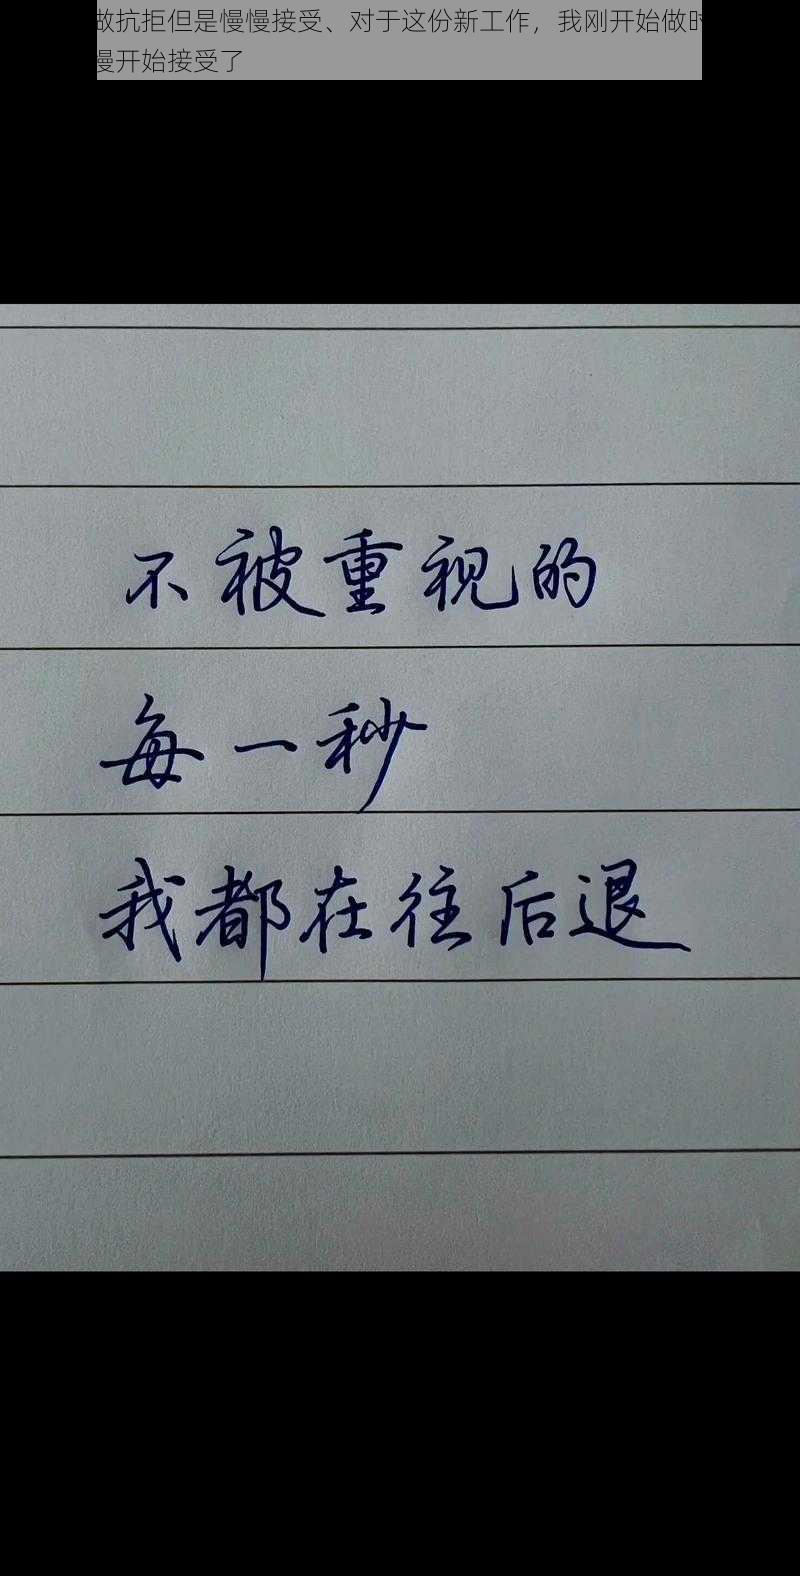 做抗拒但是慢慢接受、对于这份新工作，我刚开始做时
慢开始接受了
不被重视的
每一秒
我都在往后退